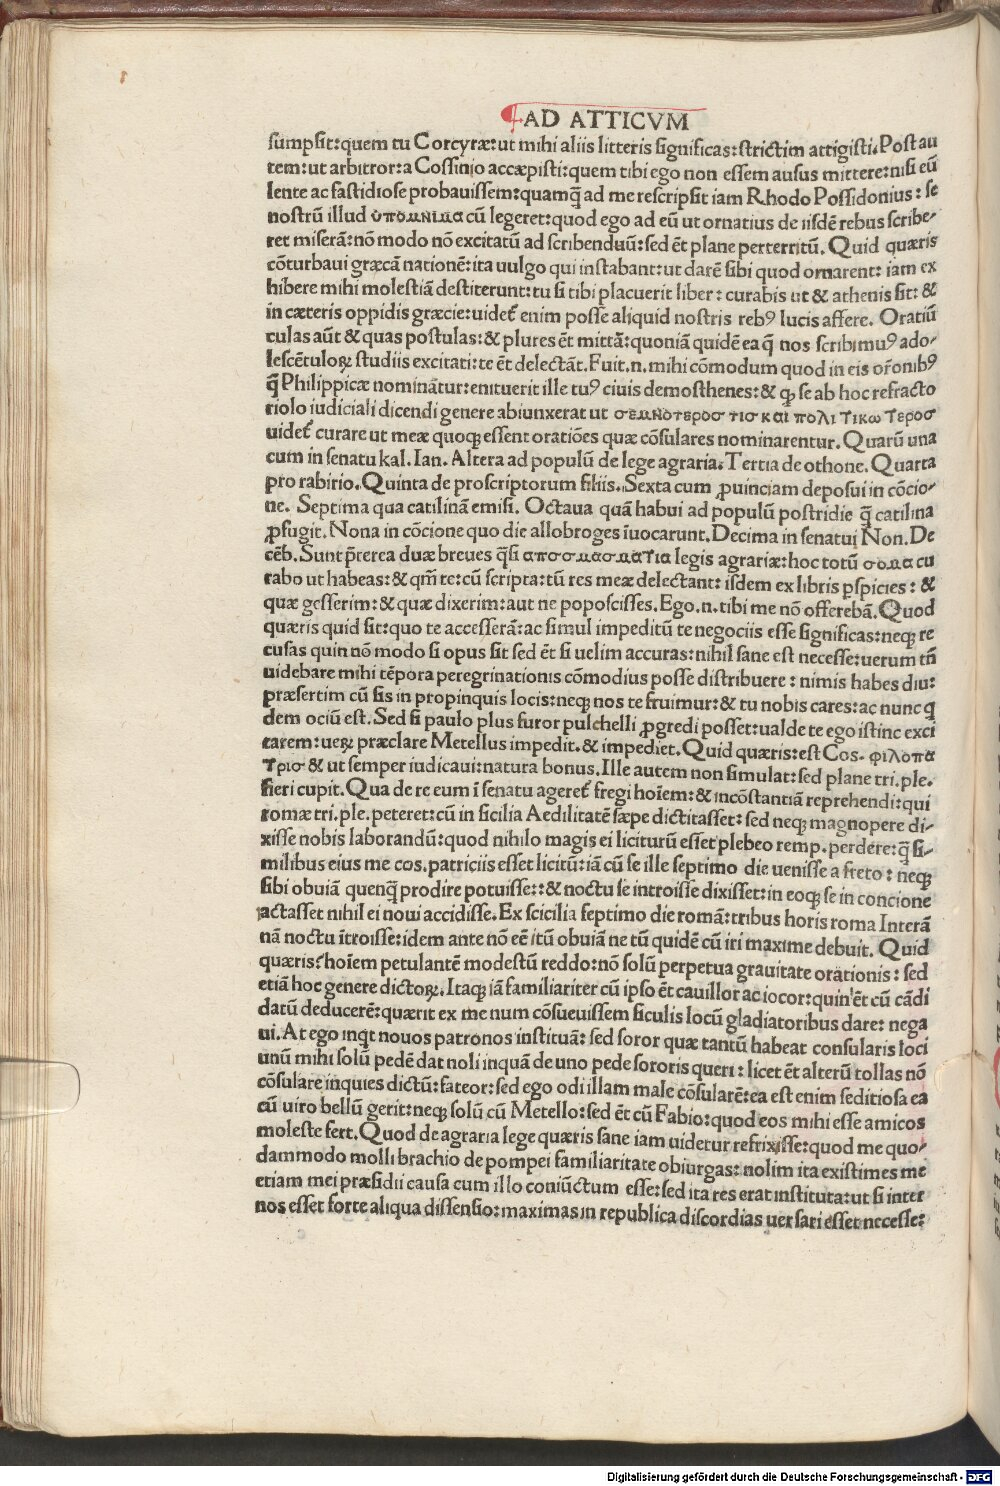 AD ATTICVM
sumpsit:quem tu Corcyræ:ut mihi aliis litteris significas:strictim attigisti.Post au
tem:ut arbitror:a Cossinio accæpisti:quem tibi ego non essem ausus mittere:nisi eū
lente ac fastidiose probauissem:quamq̄ ad me rescripsit iam Rhodo Possidonius: se
nostrū illud υπομνιμα cū legeret:quod ego ad eū ut ornatius de iisdē rebus scribe-
ret miserā:nō modo nō excitatū ad scribenduū:sed ēt plane perterritū. Quid quæris
cōturbaui græcā nationē:ita uulgo qui instabant:ut darē sibi quod ornarent: iam ex
hibere mihi molestiā destiterunt:tu si tibi placuerit liber: curabis ut & athenis sit: &
in cæteris oppidis græcie:uidet᷑ enim posse aliquid nostris rebꝰ lucis affere. Oratiū
culas aūt & quas postulas:& plures ēt mittā:quoniā quidē ea q̄ nos scribimuꝰ ado-
lescētuloꝝ studiis excitati:te ēt delectāt.Fuit.n.mihi cōmodum quod in eis or̄onibꝰ
q̄ Philippicæ nominātur:enituerit ille tuꝰ ciuis demosthenes:& ꝙ se ab hoc refracto
riolo iudiciali dicendi genere abiunxerat ut σεμνοτεροσ τισ και πολιτικωτεροσ
uidet᷑ curare ut meæ quoqꝫ essent oratiōes quæ cōsulares nominarentur. Quarū una
cum in senatu kal. Ian. Altera ad populū de lege agraria. Tertia de othone. Quarta
pro rabirio. Quinta de proscriptorum filiis. Sexta cum ꝓuinciam deposui in cōcio-
ne. Septima qua catilinā emisi. Octaua quā habui ad populū postridie q̄ catilina
ꝓfugit. Nona in cōcione quo die allobroges īuocarunt. Decima in senatui Non. De
cēb. Sunt p̄terea duæ breues q̄si αποσμασματια legis agrariæ: hoc totū σομα cu
rabo ut habeas:& qm̄ te:cū scripta:tū res meæ delectant: iisdem ex libris ꝑspicies: &
quæ gesserim:& quæ dixerim:aut ne poposcisses. Ego.n.tibi me nō offerebā. Quod
quæris quid sit:quo te accesserā:ac simul impeditū te negociis esse significas:neqꝫ re
cusas quin nō modo si opus sit sed ēt si uelim accuras:nihil sane est necesse:uerum tn̄
uidebare mihi tēpora peregrinationis cōmodius posse distribuere: nimis habes diu:
præsertim cū sis in propinquis locis:neqꝫ nos te fruimur:& tu nobis cares: ac nunc q
dem ociū est. Sed si paulo plus furor pulchelli ꝓgredi posset:ualde te ego istinc exci
tarem:ueꝝ præclare Metellus impedit. & impediet. Quid quæris:est Cos. φιλοπα
τρισ & ut semper iudicaui:natura bonus. Ille autem non simulat: sed plane tri. ple.
fieri cupit. Qua de re eum ī senatu ageret᷑ fregi hoīem:& incōstantiā reprehendi:qui
romæ tri. ple. peteret:cū in sicilia Aedilitatē sæpe dictitasset: sed neqꝫ magnopere di-
xisse nobis laborandū:quod nihilo magis ei liciturū esset plebeo remp. perdere:q̄ si-
milibus eius me cos. patriciis esset licitū:iā cū se ille septimo die uenisse a freto: neqꝫ
sibi obuiā quenq̄ prodire potuisse::& noctu se introisse dixisset:in eoqꝫ se in concione
iactasset nihil ei noui accidisse. Ex scicilia septimo die romā:tribus horis roma Interā
nā noctu ītroisse:idem ante nō eē itū obuiā ne tū quidē cū iri maxime debuit. Quid
quæris?hoīem petulantē modestū reddo:nō solū perpetua grauitate orationis: sed
etiā hoc genere dictoꝝ. Itaqꝫ iā familiariter cū ipso ēt cauillor ac iocor:quin ēt cū cādi
datū deducerē:quærit ex me num cōsueuissem siculis locū gladiatoribus dare: nega
ui. At ego inqt nouos patronos instituā: sed soror quæ tantū habeat consularis loci
unū mihi solū pedē dat noli inquā de uno pede sororis queri: licet ēt alterū tollas nō
cōsulare inquies dictū:fateor:sed ego odi illam male cōsularē:ea est enim seditiosa ea
cū uiro bellū gerit:neqꝫ solū cū Metello:sed ēt cū Fabio:quod eos mihi esse amicos
moleste fert. Quod de agraria lege quæris sane iam uidetur refrixisse:quod me quo-
dammodo molli brachio de pompei familiaritate obiurgas: nolim ita existimes me
etiam mei præsidii causa cum illo coniūctum esse:sed ita res erat instituta:ut si inter
nos esset forte aliqua dissensio:maximas in republica discordias uersari esset necesse:
Digitalisierung gefördert durch die Deutsche Forschungsgemeinschaft - DFG